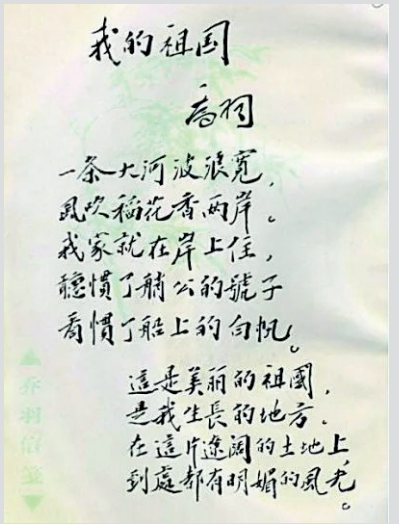 我的祖国
乔羽
一条大河波浪宽，
风吹稻花香两岸。
我家就在岸上住，
聽慣了艄公的號子
看慣了船上的白帆。
這是美丽的祖國，
是我生長的地方，
在這片遼阔的土地上，
到處都有明媚的風光。
乔羽信箋